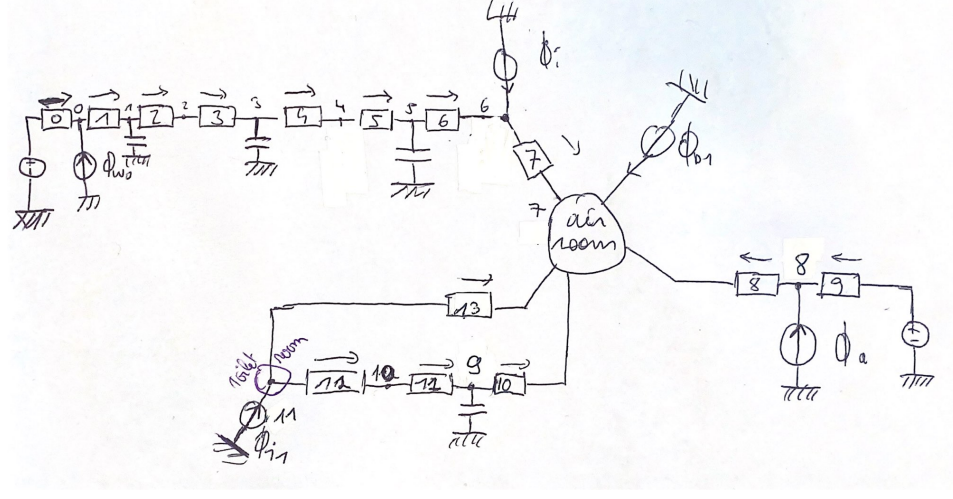 Φi
0 0 1 1 2 2 3 3 4 4 5 5 6 6
Φwo
7
Φb1
7 air
room
8
8 9
Φa
13
toilet room
12 10 11 9 10
11
Φi1